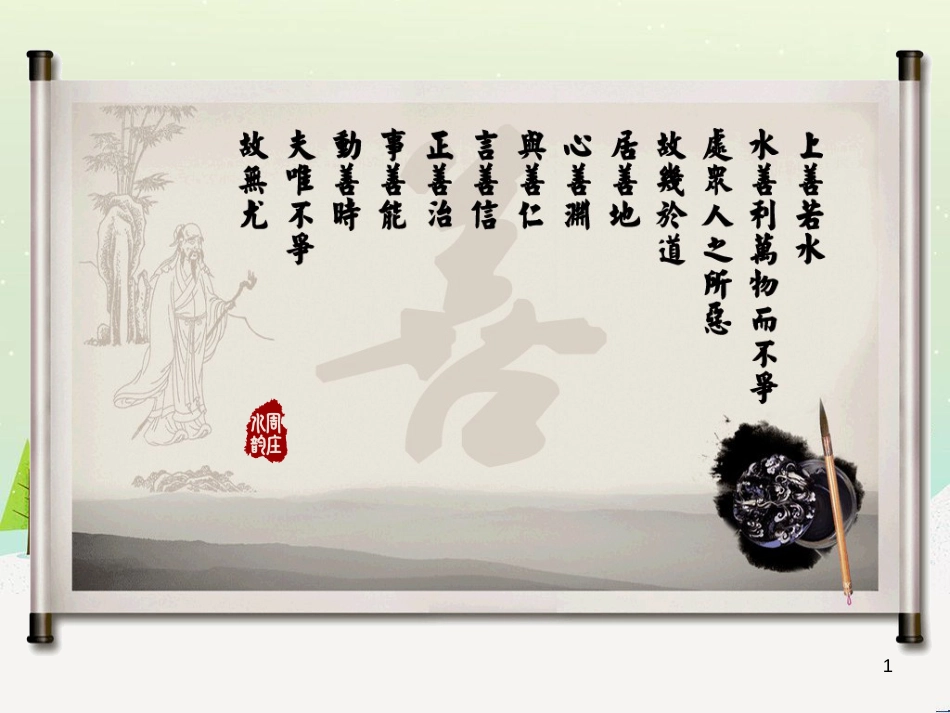 上善若水
水善利萬物而不爭
處眾人之所惡
故幾於道
居善地
心善淵
與善仁
言善信
正善治
事善能
動善時
夫唯不爭
故無尤
善
周庄
水韵
1